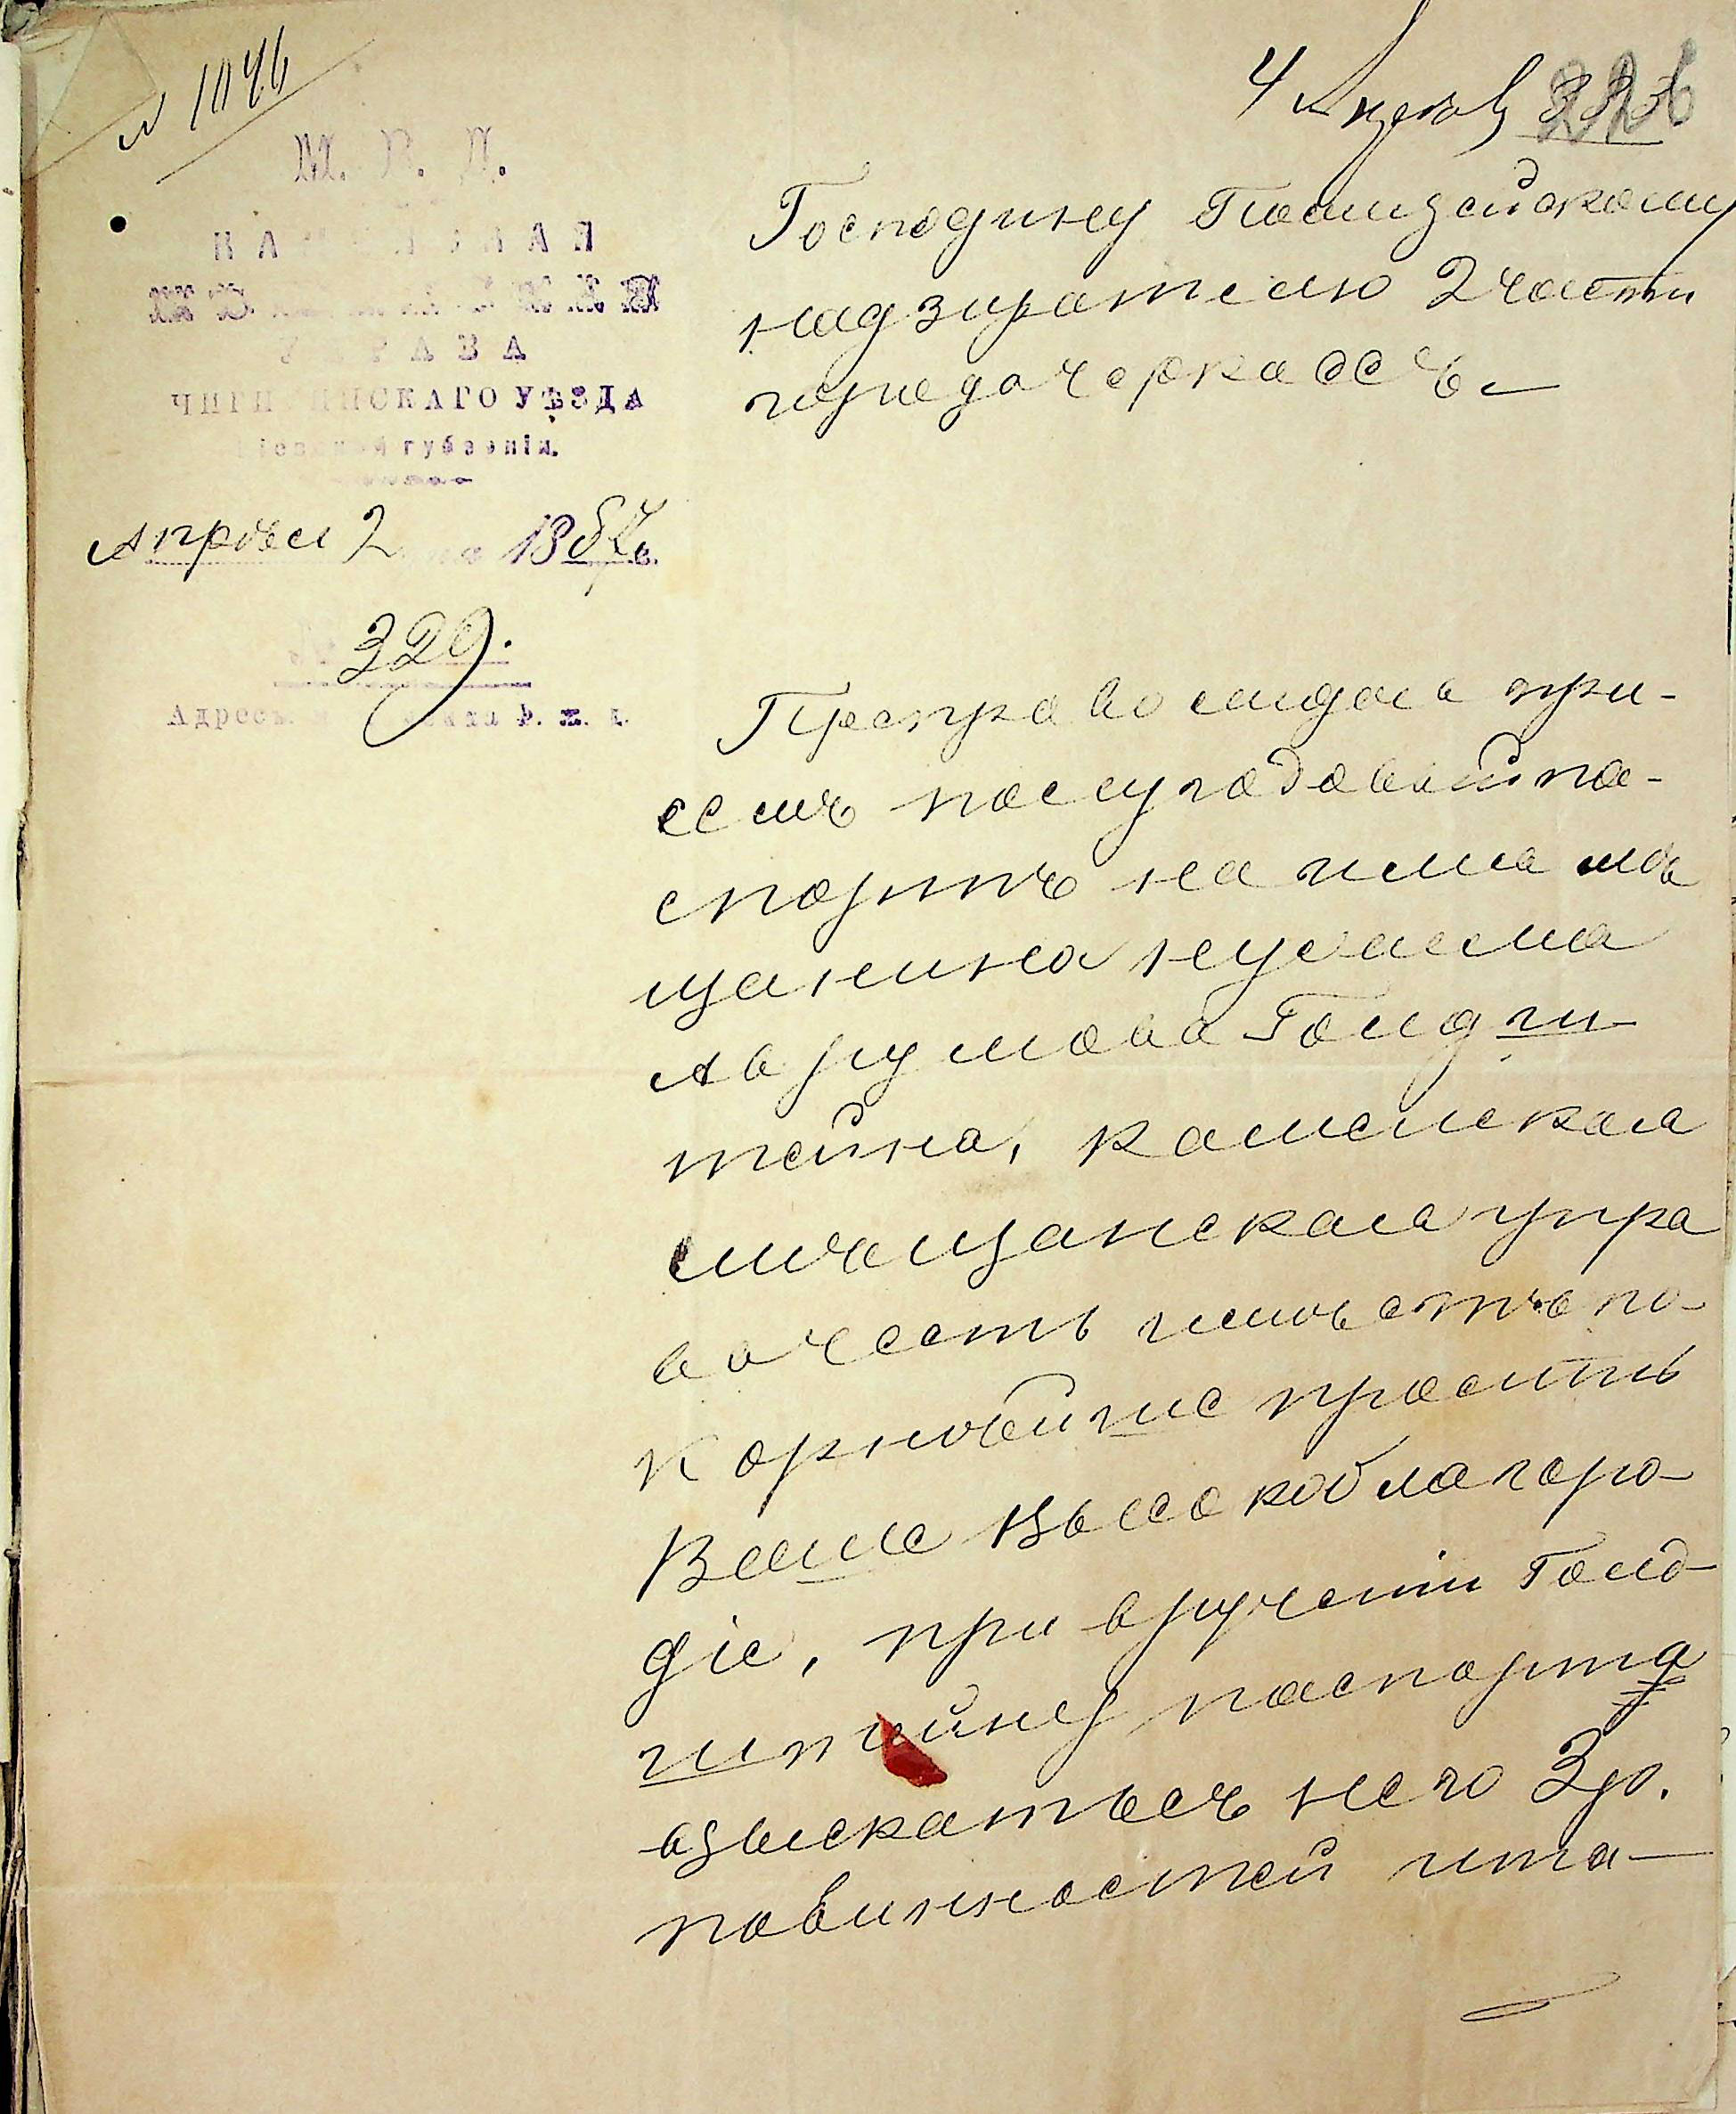 № 1046
4 Апреля
М. В. Д.
УПРАВА
ЧИГИРИНСКАГО УѢЗДА
Кіевской губерніи.
Апреля 2 дня 1887 г.
№ 329.
Адресъ:
Господину Полицейскому
надзирателю 2 части
города Черкассъ.
Препровождая при
семъ полугодовой па-
спортъ на имя мѣ
щанина Нухима
Аврумова Голдш
тейна, каменская
мѣщанская упра
ва честь имѣетъ по-
корнѣйше просить
Ваше Высокоблагоро-
діе, при врученіи Голд-
штейну паспорта
взыскать съ него 3 р.
повинностей и та-